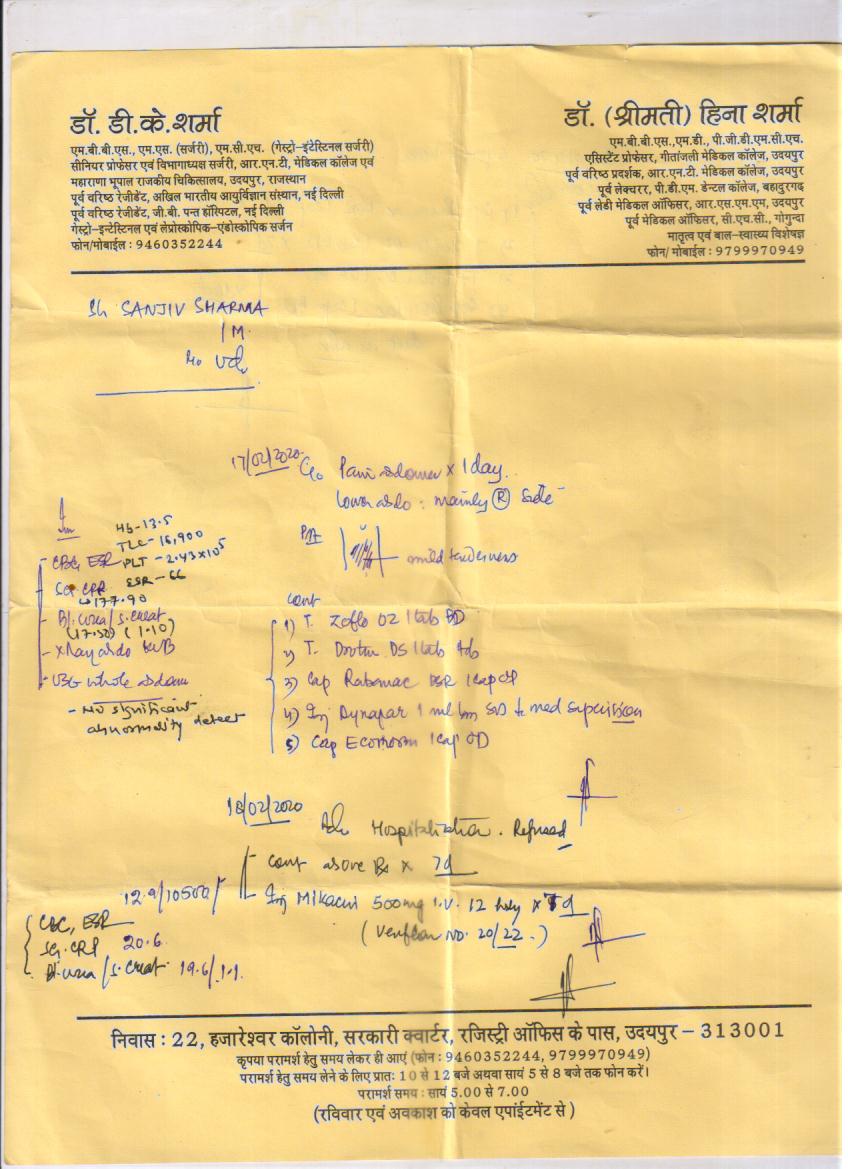 डॉ. डी.के.शर्मा
एम.बी.बी.एस., एम.एस. (सर्जरी), एम.सी.एच. (गेस्ट्रो-इंटेस्टिनल सर्जरी)
सीनियर प्रोफेसर एवं विभागाध्यक्ष सर्जरी, आर.एन.टी. मेडिकल कॉलेज एवं
महाराणा भूपाल राजकीय चिकित्सालय, उदयपुर, राजस्थान
पूर्व वरिष्ठ रेजीडेंट, अखिल भारतीय आयुर्विज्ञान संस्थान, नई दिल्ली
पूर्व वरिष्ठ रेजीडेंट, जी.बी. पन्त हॉस्पिटल, नई दिल्ली
गेस्ट्रो-इन्टेस्टिनल एवं लेप्रोस्कोपिक-एंडोस्कोपिक सर्जन
फोन/मोबाईल : 9460352244
डॉ. (श्रीमती) हिना शर्मा
एम.बी.बी.एस.,एम.डी., पी.जी.डी.एम.सी.एच.
एसिस्टेंट प्रोफेसर, गीतांजली मेडिकल कॉलेज, उदयपुर
पूर्व वरिष्ठ प्रदर्शक, आर.एन.टी. मेडिकल कॉलेज, उदयपुर
पूर्व लेक्चरर, पी.डी.एम. डेन्टल कॉलेज, बहादुरगढ़
पूर्व लेडी मेडिकल ऑफिसर, आर.एस.एम.एम, उदयपुर
पूर्व मेडिकल ऑफिसर, सी.एच.सी., गोगुन्दा
मातृत्व एवं बाल-स्वास्थ्य विशेषज्ञ
फोन/ मोबाईल : 9799970949
Sh. SANJIV SHARMA
/ M.
17/02/2020 C/o Pain abdomen x 1 day.
Lower abdo : mainly (R) side
P/A mild tenderness
Hb - 13.5
TLC - 16,900
CBC, ESR PLT - 2.43x10⁵
ESR - 66
Sr. CRP
→ 177.90
Bl. Urea / S. creat
(17.50) (1.10)
- Xray abdo KUB
- USG whole abdom
- No significant
abnormality detect
1) T. Zoflo OZ 1 tab BD
2) T. Drotin DS 1 tab
3) Cap Rabemac DSR 1 cap OD
4) Inj Dynapar 1 ml Im med supervision
5) Cap Econorm 1 cap OD
18/02/2020
Adv Hospitalization. Refused
- Cont above Rx x 7d
- Inj Mikacin 500mg I.V. 12 hrly x 7d
(Venflon NO. 20/22)
12.9/10500/
CBC, ESR
Sr. CRP 20.6
Bl. urea / S. creat 19.6/1.1.
निवास : 22, हजारेश्वर कॉलोनी, सरकारी क्वार्टर, रजिस्ट्री ऑफिस के पास, उदयपुर – 313001
कृपया परामर्श हेतु समय लेकर ही आएं (फोन : 9460352244, 9799970949)
परामर्श हेतु समय लेने के लिए प्रातः 10 से 12 बजे अथवा सायं 5 से 8 बजे तक फोन करें।
परामर्श समय : सायं 5.00 से 7.00
(रविवार एवं अवकाश को केवल एपांईटमेंट से )